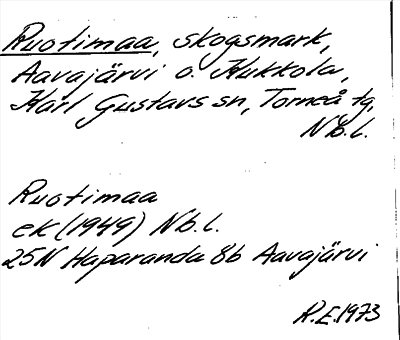 Ruotimaa, skogsmark,
Aavajärvi o. Kukkola,
Karl Gustavs sn, Torneå tg,
Nb.l.
Ruotimaa
ek (1949) Nb.l.
25N Haparanda 8b Aavajärvi
R.E.1973